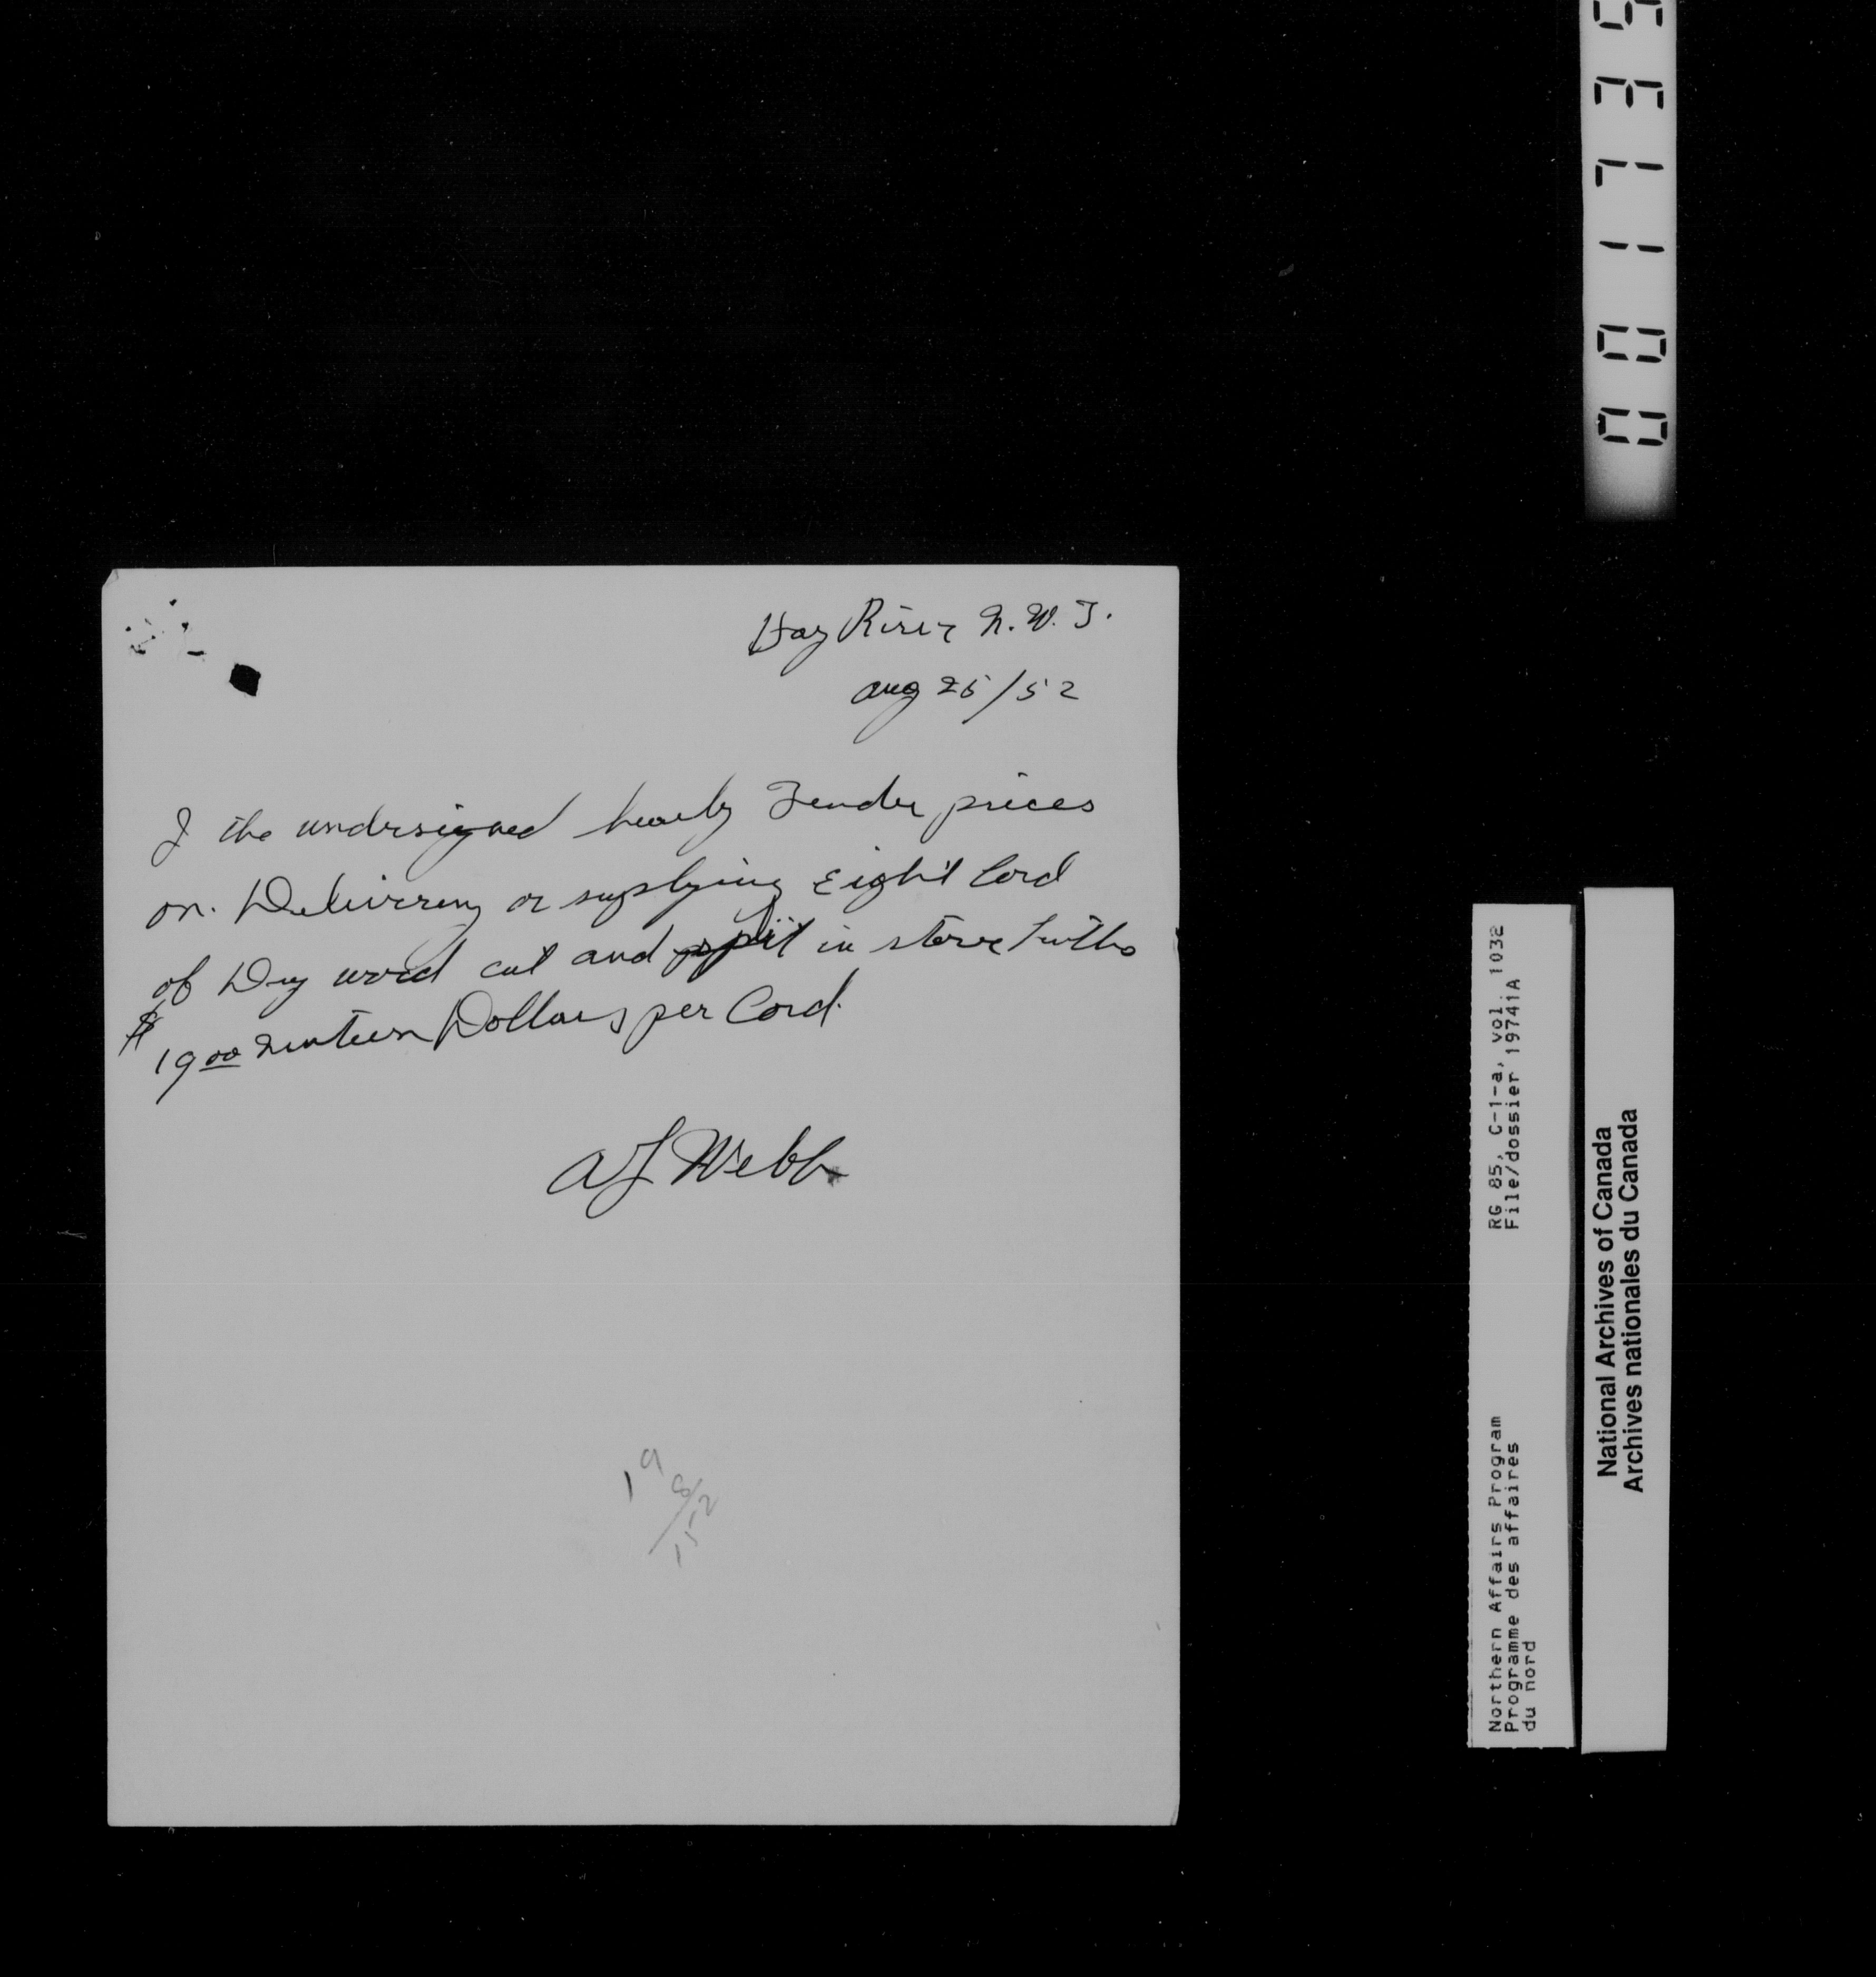 Hay River N.W.T.
aug 25/52
I the undersigned hearby Tender prices
on. Delivirreng or suplying Eight Cord
of Dry wood cut and split in stove
$19.00 Dollars per Cord.
A Webb
RG 85, C-1-a, vol. 1032
File/dossier 19741A
Northern Affairs Program
Programme des affaires
du nord
National Archives of Canada
Archives nationales du Canada